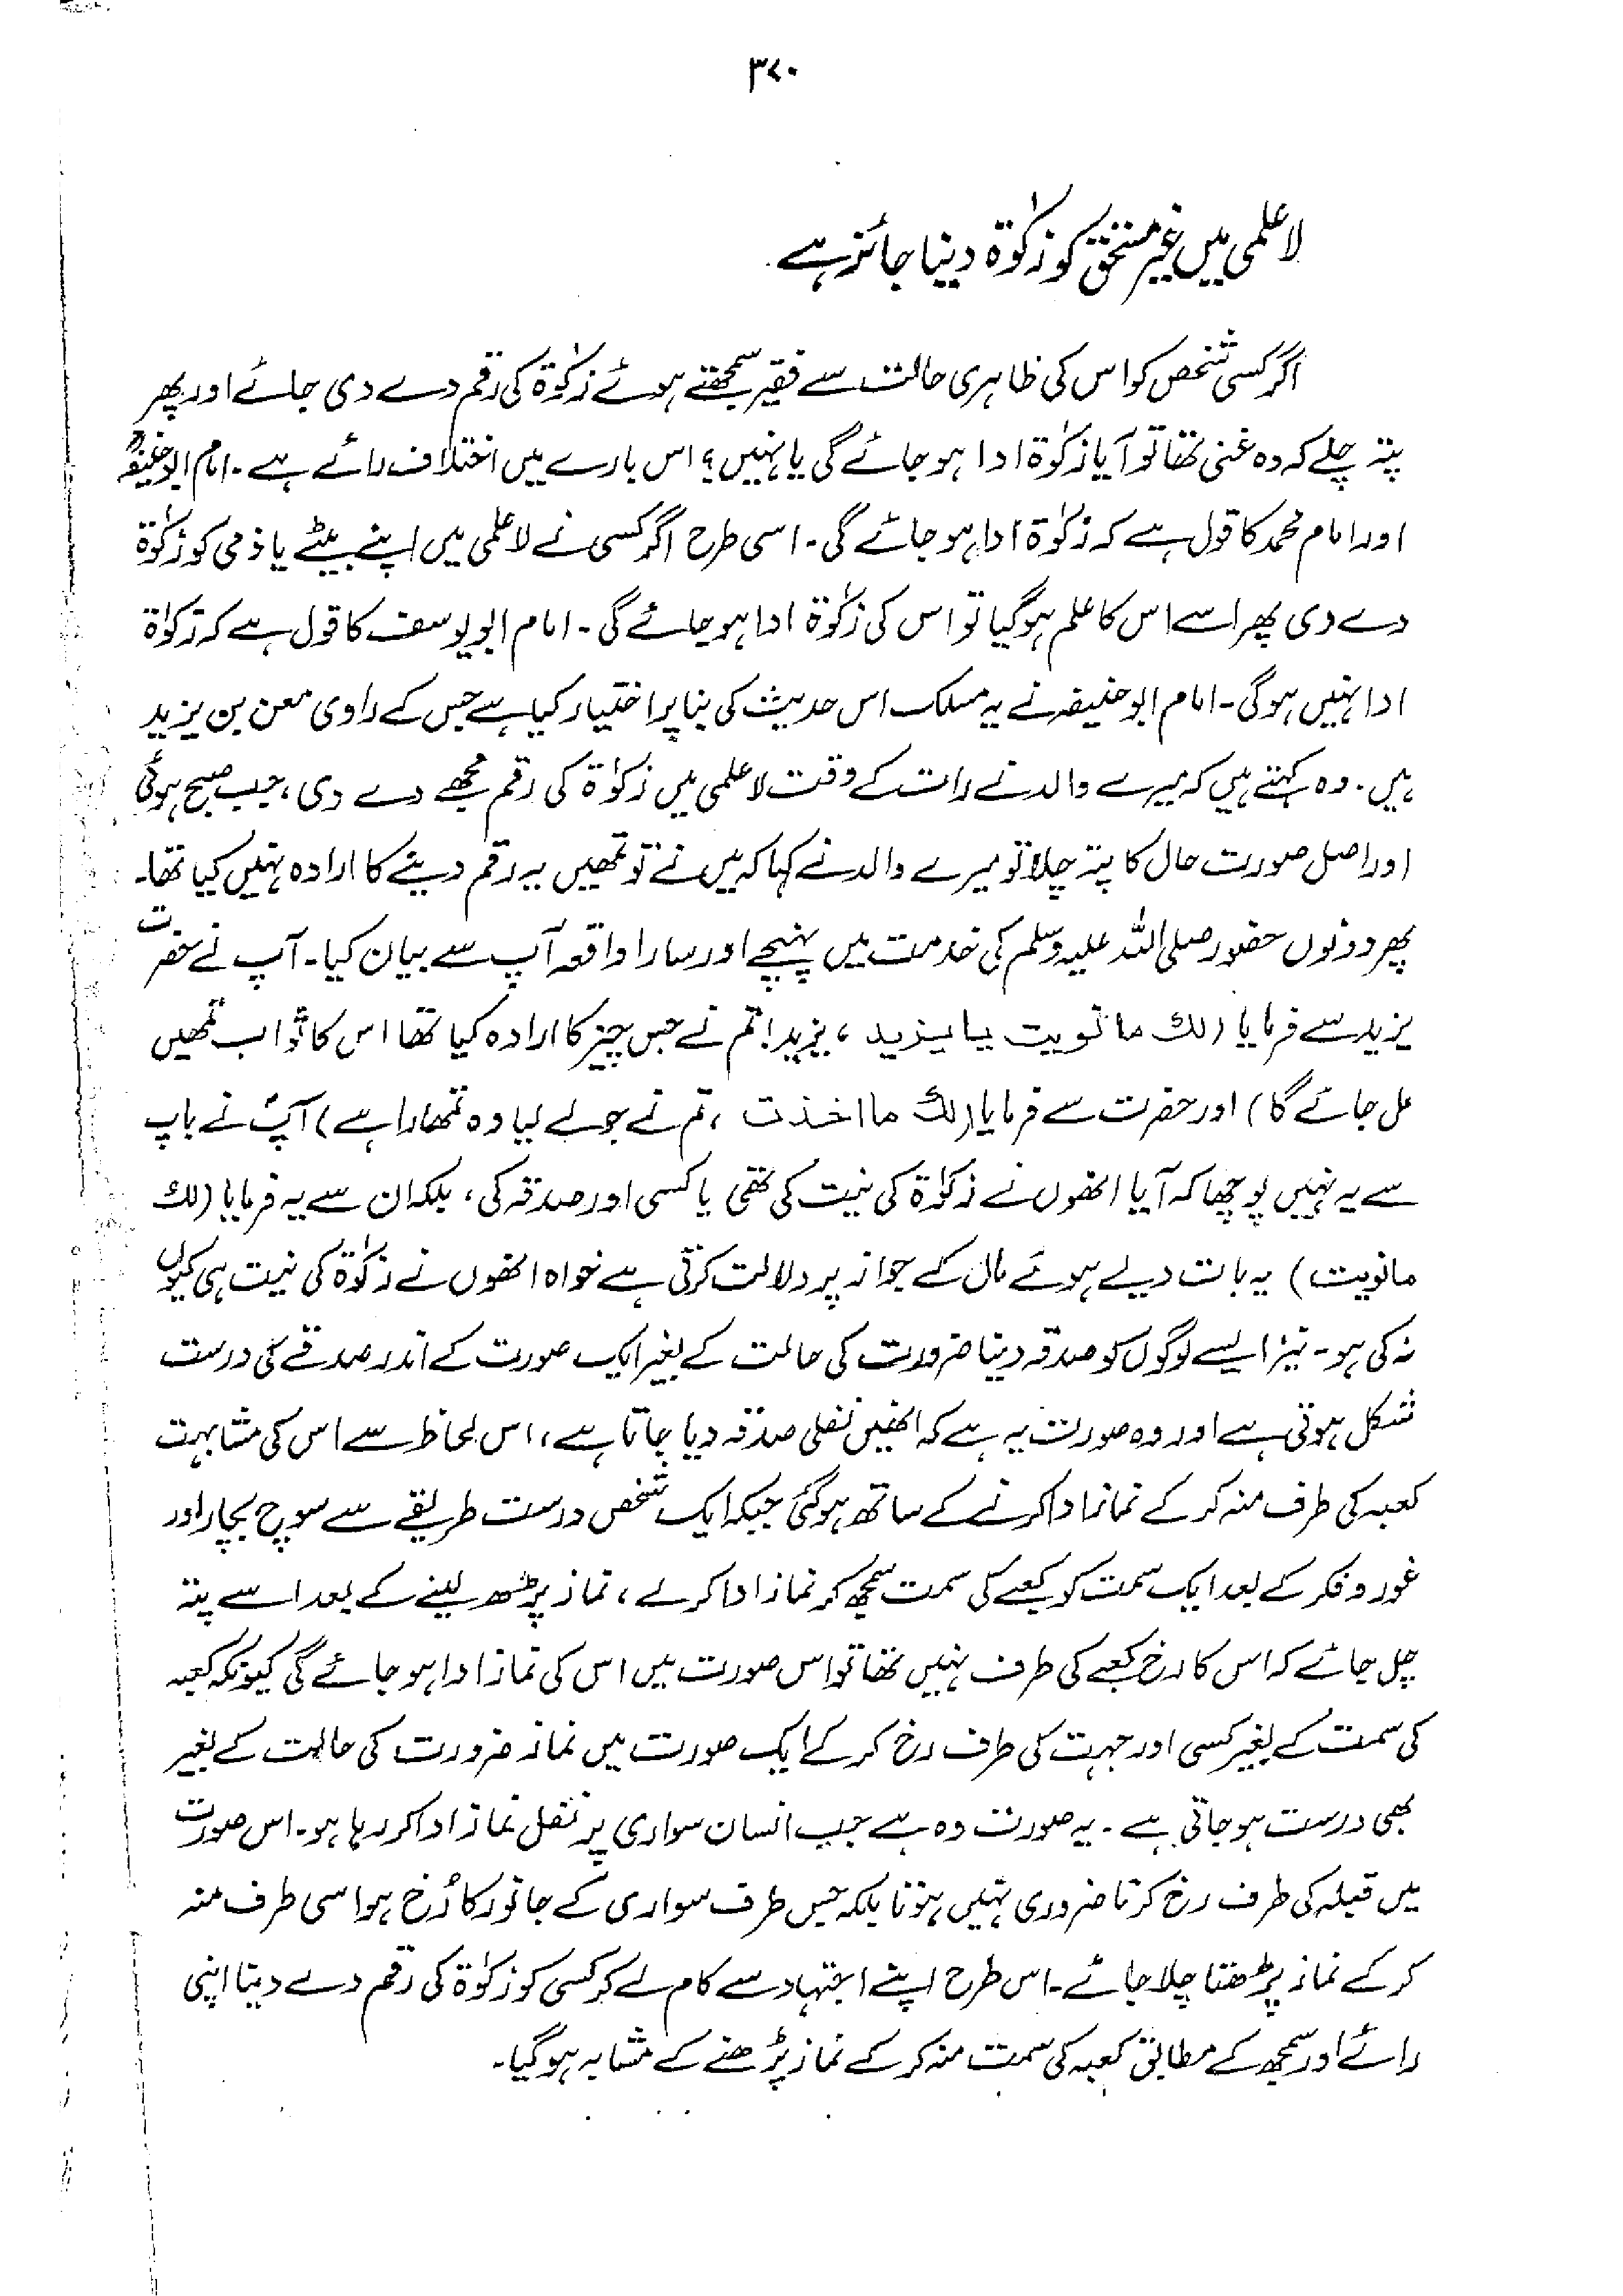 ۳۷۰
لاعلمی میں غیر مستحق کو زکوٰۃ دینا جائز ہے
اگر کسی شخص کو اس کی ظاہری حالت سے فقیر سمجھتے ہوئے زکوٰۃ کی رقم دے دی جائے اور پھر
پتہ چلے کہ وہ غنی تھا تو آیا زکوٰۃ ادا ہو جائے گی یا نہیں؟ اس بارے میں اختلاف رائے ہے۔ امام ابو حنیفہؒ
اور امام محمد کا قول ہے کہ زکوٰۃ ادا ہو جائے گی۔ اسی طرح اگر کسی نے لاعلمی میں اپنے بیٹے یا ذمی کو زکوٰۃ
دے دی پھر اسے اس کا علم ہو گیا تو اس کی زکوٰۃ ادا ہو جائے گی۔ امام ابو یوسف کا قول ہے کہ زکوٰۃ
ادا نہیں ہو گی۔ امام ابو حنیفہ نے یہ مسلک اس حدیث کی بنا پر اختیار کیا ہے جس کے راوی معن بن یزید
ہیں۔ وہ کہتے ہیں کہ میرے والد نے رات کے وقت لاعلمی میں زکوٰۃ کی رقم مجھے دے دی، جب صبح ہوئی
اور اصل صورت حال کا پتہ چلا تو میرے والد نے کہا کہ میں نے تو تمھیں یہ رقم دینے کا ارادہ نہیں کیا تھا۔
پھر دونوں حضور صلی اللہ علیہ وسلم کی خدمت میں پہنچے اور سارا واقعہ آپ سے بیان کیا۔ آپ نے حضرت
یزید سے فرمایا (لك ما نويت يا يزيد، یزید! تم نے جس چیز کا ارادہ کیا تھا اس کا ثواب تمھیں
مل جائے گا) اور حضرت سے فرمایا (لك ما اخذت، تم نے جو لے لیا وہ تمھارا ہے) آپؐ نے باپ
سے یہ نہیں پوچھا کہ آیا انھوں نے زکوٰۃ کی نیت کی تھی یا کسی اور صدقہ کی، بلکہ ان سے یہ فرمایا (لك
ما نويت) یہ بات دیے ہوئے مال کے جواز پر دلالت کرتی ہے خواہ انھوں نے زکوٰۃ کی نیت ہی کیوں
نہ کی ہو۔ نیز ایسے لوگوں کو صدقہ دینا ضرورت کی حالت کے بغیر ایک صورت کے اندر صدقے کی درست
شکل ہوتی ہے اور وہ صورت یہ ہے کہ انھیں نفلی صدقہ دیا جاتا ہے، اس لحاظ سے اس کی مشابہت
کعبہ کی طرف منہ کر کے نماز ادا کرنے کے ساتھ ہو گئی جبکہ ایک شخص درست طریقے سے سوچ بچار اور
غور و فکر کے بعد ایک سمت کو کعبے کی سمت سمجھ کر نماز ادا کر لے، نماز پڑھ لینے کے بعد اسے پتہ
چل جائے کہ اس کا رخ کعبے کی طرف نہیں تھا تو اس صورت میں اس کی نماز ادا ہو جائے گی کیونکہ کعبہ
کی سمت کے بغیر کسی اور جہت کی طرف رخ کر کے ایک صورت میں نماز ضرورت کی حالت کے بغیر
بھی درست ہو جاتی ہے۔ یہ صورت وہ ہے جب انسان سواری پر نفل نماز ادا کر رہا ہو۔ اس صورت
میں قبلہ کی طرف رخ کرنا ضروری نہیں ہوتا بلکہ جس طرف سواری کے جانور کا رُخ ہو اسی طرف منہ
کر کے نماز پڑھتا چلا جائے۔ اس طرح اپنے اجتہاد سے کام لے کر کسی کو زکوٰۃ کی رقم دے دینا اپنی
رائے اور سمجھ کے مطابق کعبہ کی سمت منہ کر کے نماز پڑھنے کے مشابہ ہو گیا۔